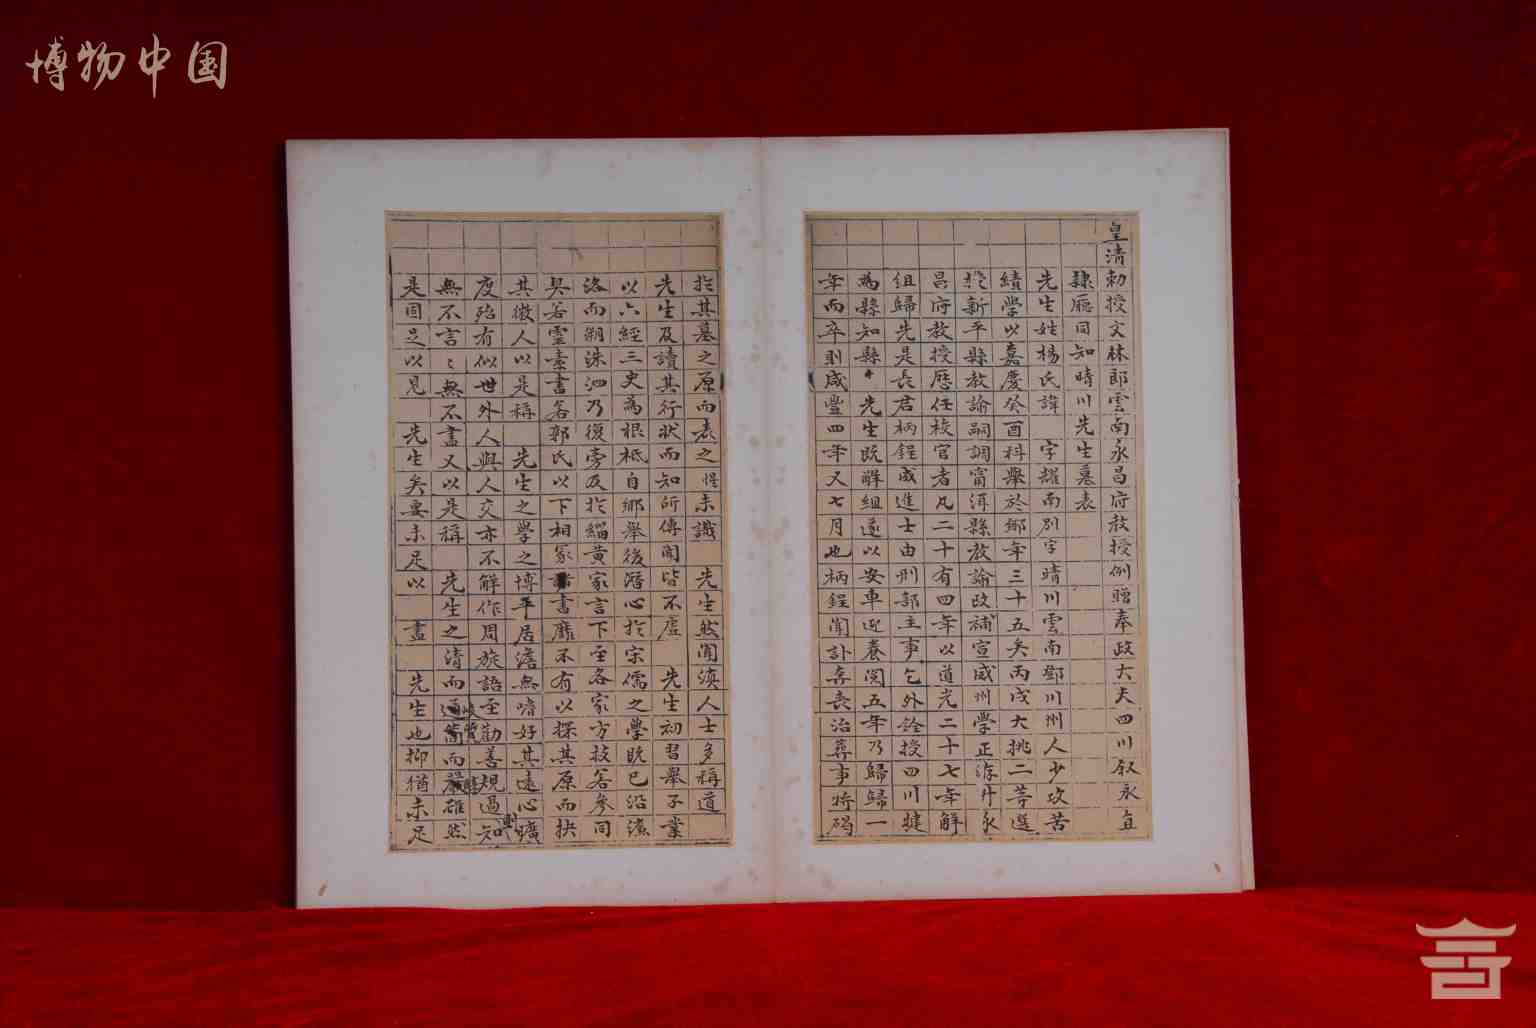 博物中国
皇清勅授文林郎雲南永昌府教授例贈奉政大夫四川叙永直
隸廳同知晴川先生墓表
先生姓楊氏諱 字耀南別字晴川雲南鄧川州人少攻苦
績學以嘉慶癸酉科舉於鄉年三十五矣丙戌大挑二等選
於新平縣教諭嗣調甯洱縣教諭改補宣威州學正洊升永
昌府教授歷任校官者凡二十有四年以道光二十七年解
組歸先是長君柄鋥成進士由刑部主事乞外銓授四川犍
為縣知縣 先生既解組遂以安車迎養閱五年乃歸歸一
年而卒則咸豐四年又七月也柄鋥聞訃奔喪治葬事將碣
於其墓之原而表之 未識 先生然聞滇人士多稱道
先生及讀其行狀而知所傳聞皆不虛 先生初習舉子業
以六經三史為根柢自鄉舉後潛心於宋儒之學既已沿濂
洛而溯洙泗乃復旁及於緇黃家言下至各家方技若參同
契若靈素書若郭氏以下相冢書靡不有以探其原而抉
其微人以是稱 先生之學之博平居澹無嗜好其遠心曠
度殆有似世外人與人交亦不解作周旋語至勸善規過知
無不言言無不盡又以是稱 先生之清而通簡而嚴雖然
是固足以見 先生矣要未足以 盡 先生也抑猶未足